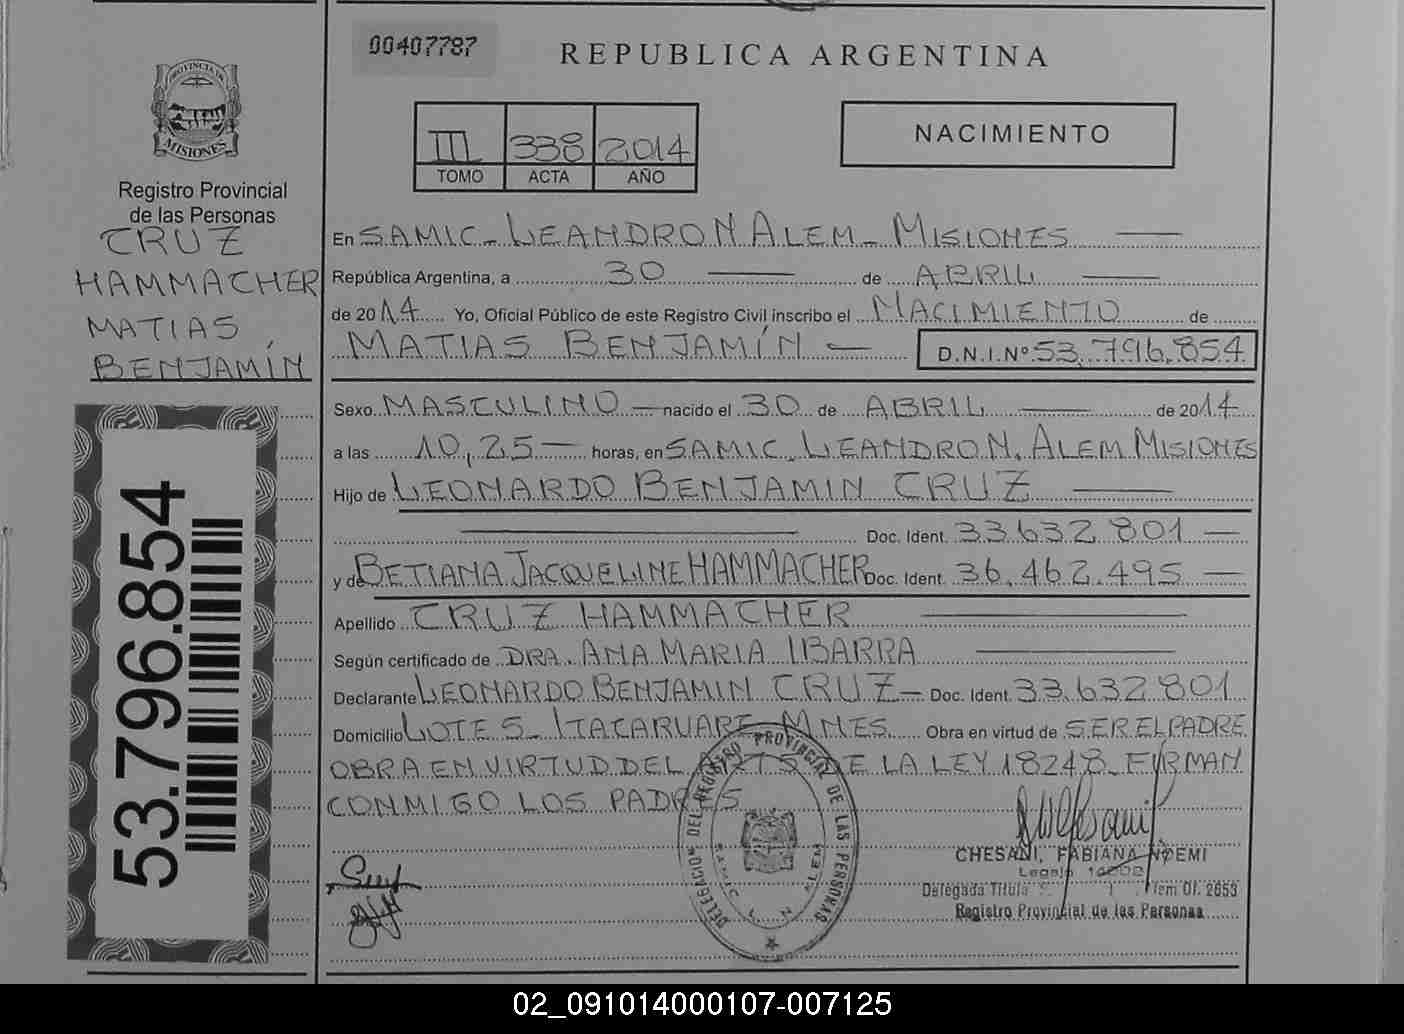 00407787
REPUBLICA ARGENTINA
PROVINCIA DE
MISIONES
Registro Provincial
de las Personas
III 338 2014
TOMO ACTA AÑO
NACIMIENTO
CRUZ
HAMMACHER
MATIAS
BENJAMÍN
53.796.854
En SAMIC - LEANDRO N ALEM - MISIONES
República Argentina, a 30 de ABRIL
de 2014 Yo, Oficial Público de este Registro Civil inscribo el NACIMIENTO de
MATIAS BENJAMÍN D.N.I.Nº 53.796.854
Sexo MASCULINO nacido el 30 de ABRIL de 2014
a las 10,25 horas, en SAMIC. LEANDRO N. ALEM MISIONES
Hijo de LEONARDO BENJAMIN CRUZ
Doc. Ident. 33.632.801
y de BETIANA JACQUELINE HAMMACHER Doc. Ident. 36.462.495
Apellido CRUZ HAMMACHER
Según certificado de DRA. ANA MARIA IBARRA
Declarante LEONARDO BENJAMIN CRUZ - Doc. Ident. 33.632801
Domicilio LOTE 5 - ITACARUARE - MNES. Obra en virtud de SER EL PADRE
OBRA EN VIRTUD DEL ART 5 DE LA LEY 18248 - FIRMAN
CONMIGO LOS PADRES
DELEGACION DEL REGISTRO PROVINCIAL DE LAS PERSONAS
SAMIC L N ALEM
CHESANI, FABIANA NOEMI
Legajo
Delegada Titula Alem Of. 2653
Registro Provincial de las Personas
02_091014000107-007125